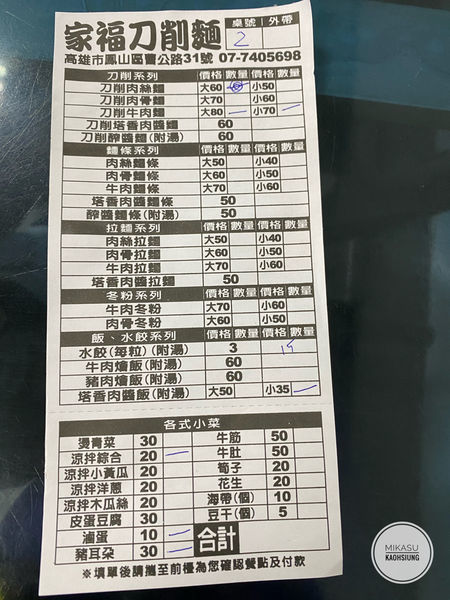 家福刀削麵 桌號 2 外帶
高雄市鳳山區曹公路31號 07-7405698
刀削系列 價格 數量 價格 數量
刀削肉絲麵 大60 小50
刀削肉骨麵 大70 小60
刀削牛肉麵 大80 一 小70 一
刀削塔香肉醬麵 60
刀削醡醬麵(附湯) 60
麵條系列 價格 數量 價格 數量
肉絲麵條 大50 小40
肉骨麵條 大60 小50
牛肉麵條 大70 小60
塔香肉醬麵條 50
醡醬麵條(附湯) 50
拉麵系列 價格 數量 價格 數量
肉絲拉麵 大50 小40
肉骨拉麵 大60 小50
牛肉拉麵 大70 小60
塔香肉醬拉麵 50
冬粉系列 價格 數量 價格 數量
牛肉冬粉 大70 小60
肉骨冬粉 大60 小50
飯、水餃系列 價格 數量 價格 數量
水餃(每粒)(附湯) 3 15
牛肉燴飯(附湯) 60
豬肉燴飯(附湯) 60
塔香肉醬飯(附湯) 大50 小35 一
各式小菜
燙青菜 30 牛筋 50
涼拌綜合 20 一 牛肚 50
涼拌小黃瓜 20 筍子 20
涼拌洋蔥 20 花生 20
涼拌木瓜絲 20 海帶(個) 10
皮蛋豆腐 30 豆干(個) 5
滷蛋 10 一 合計
豬耳朵 30 一
※填單後請攜至前檯為您確認餐點及付款
MIKASU
KAOHSIUNG